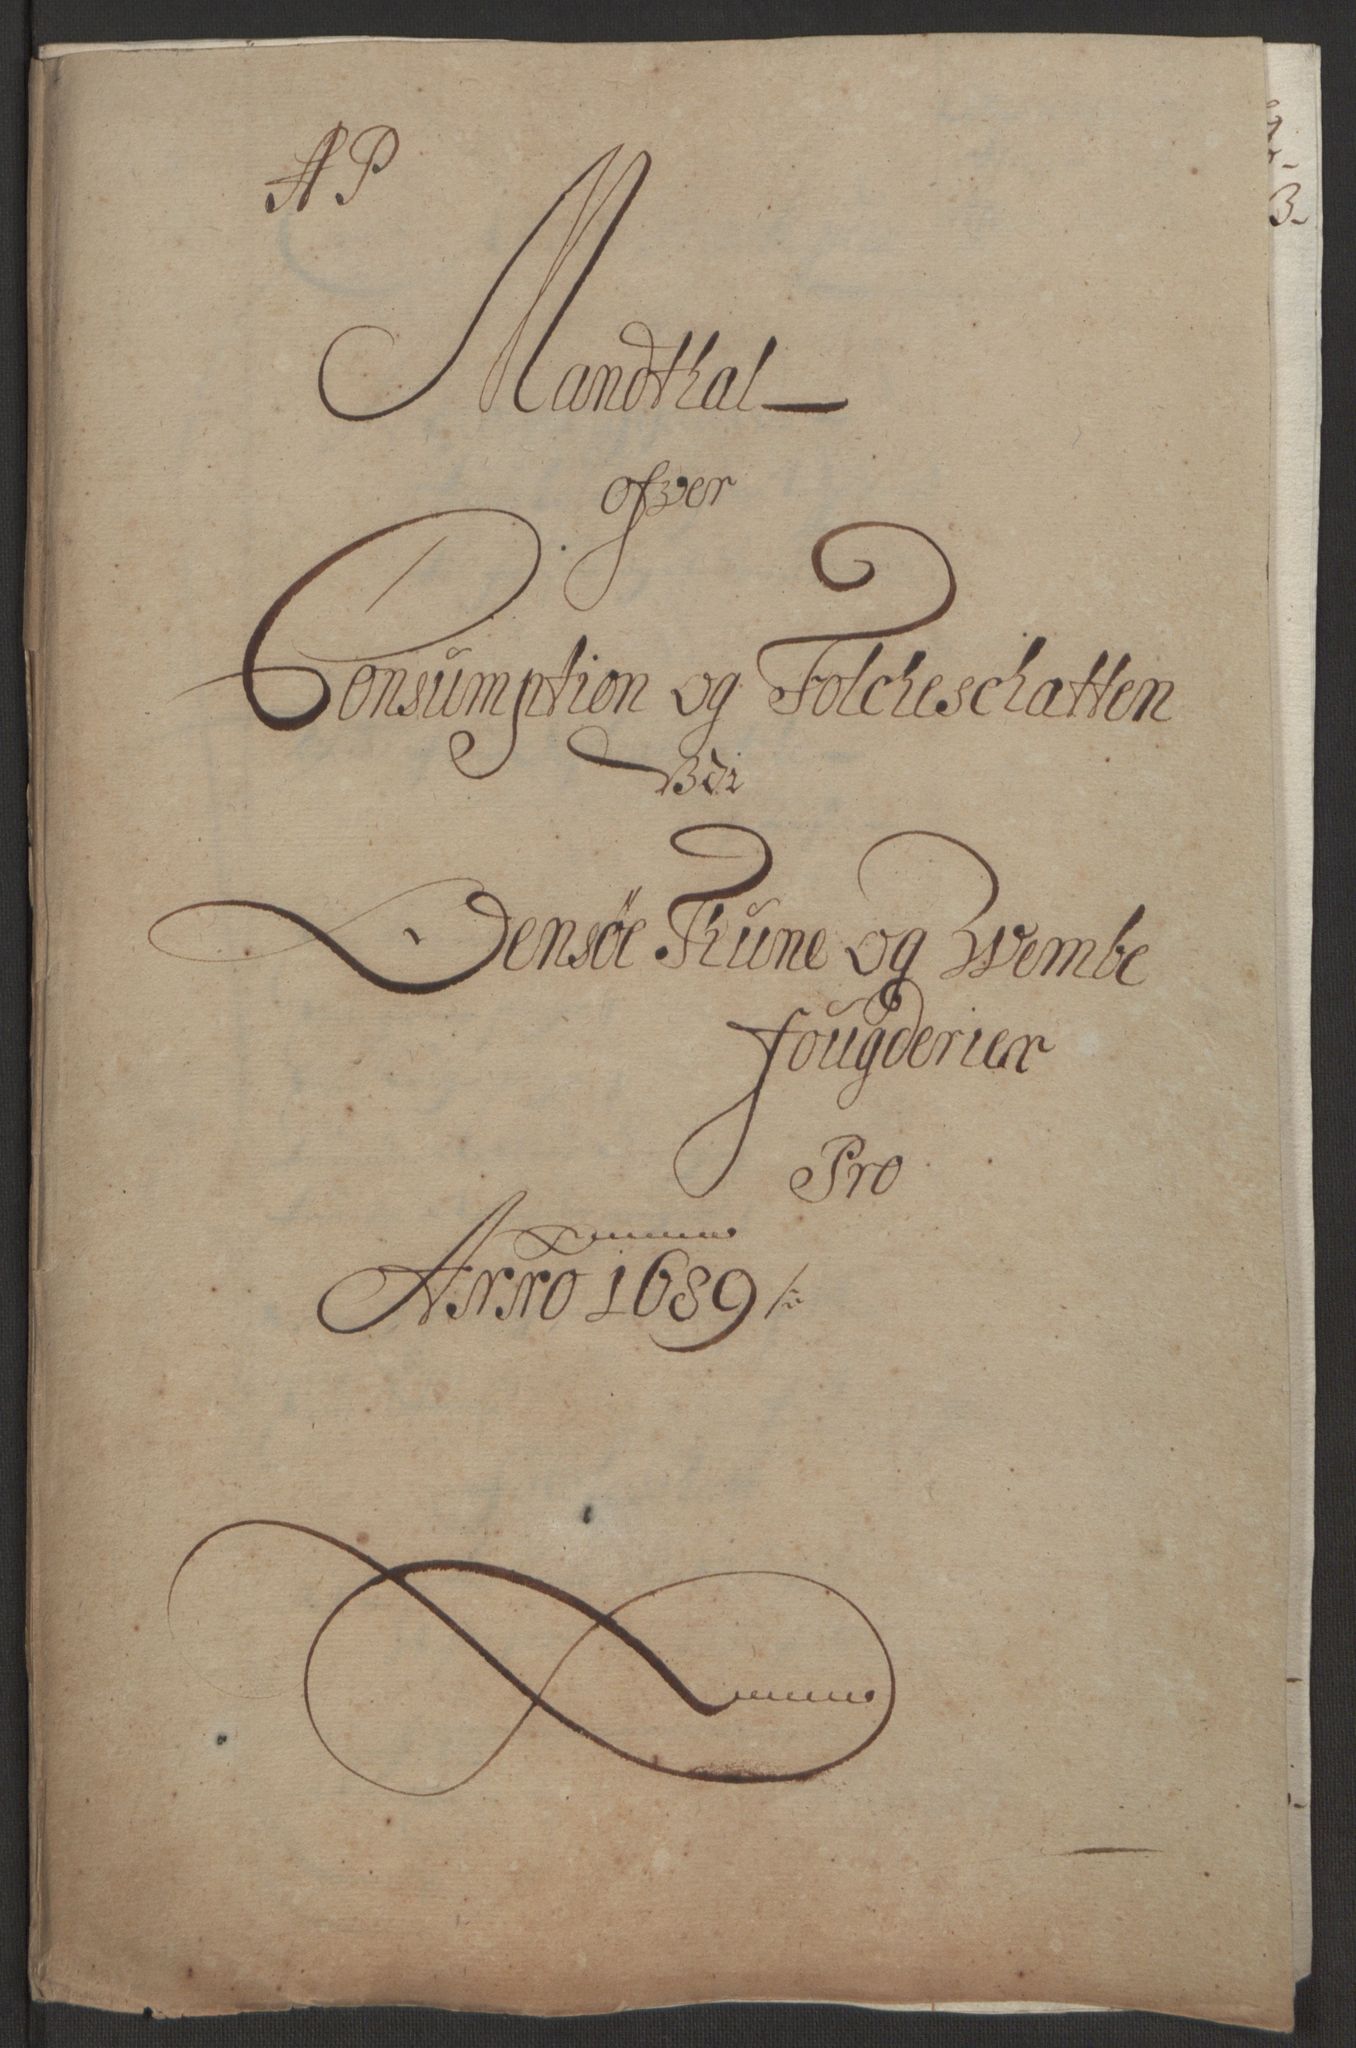 AP
Mandthal
ofver
Consumption og Folcheschatten
Udi
Jensøe Thune og Wembe
fougderier
Pro
Anno 1689
3